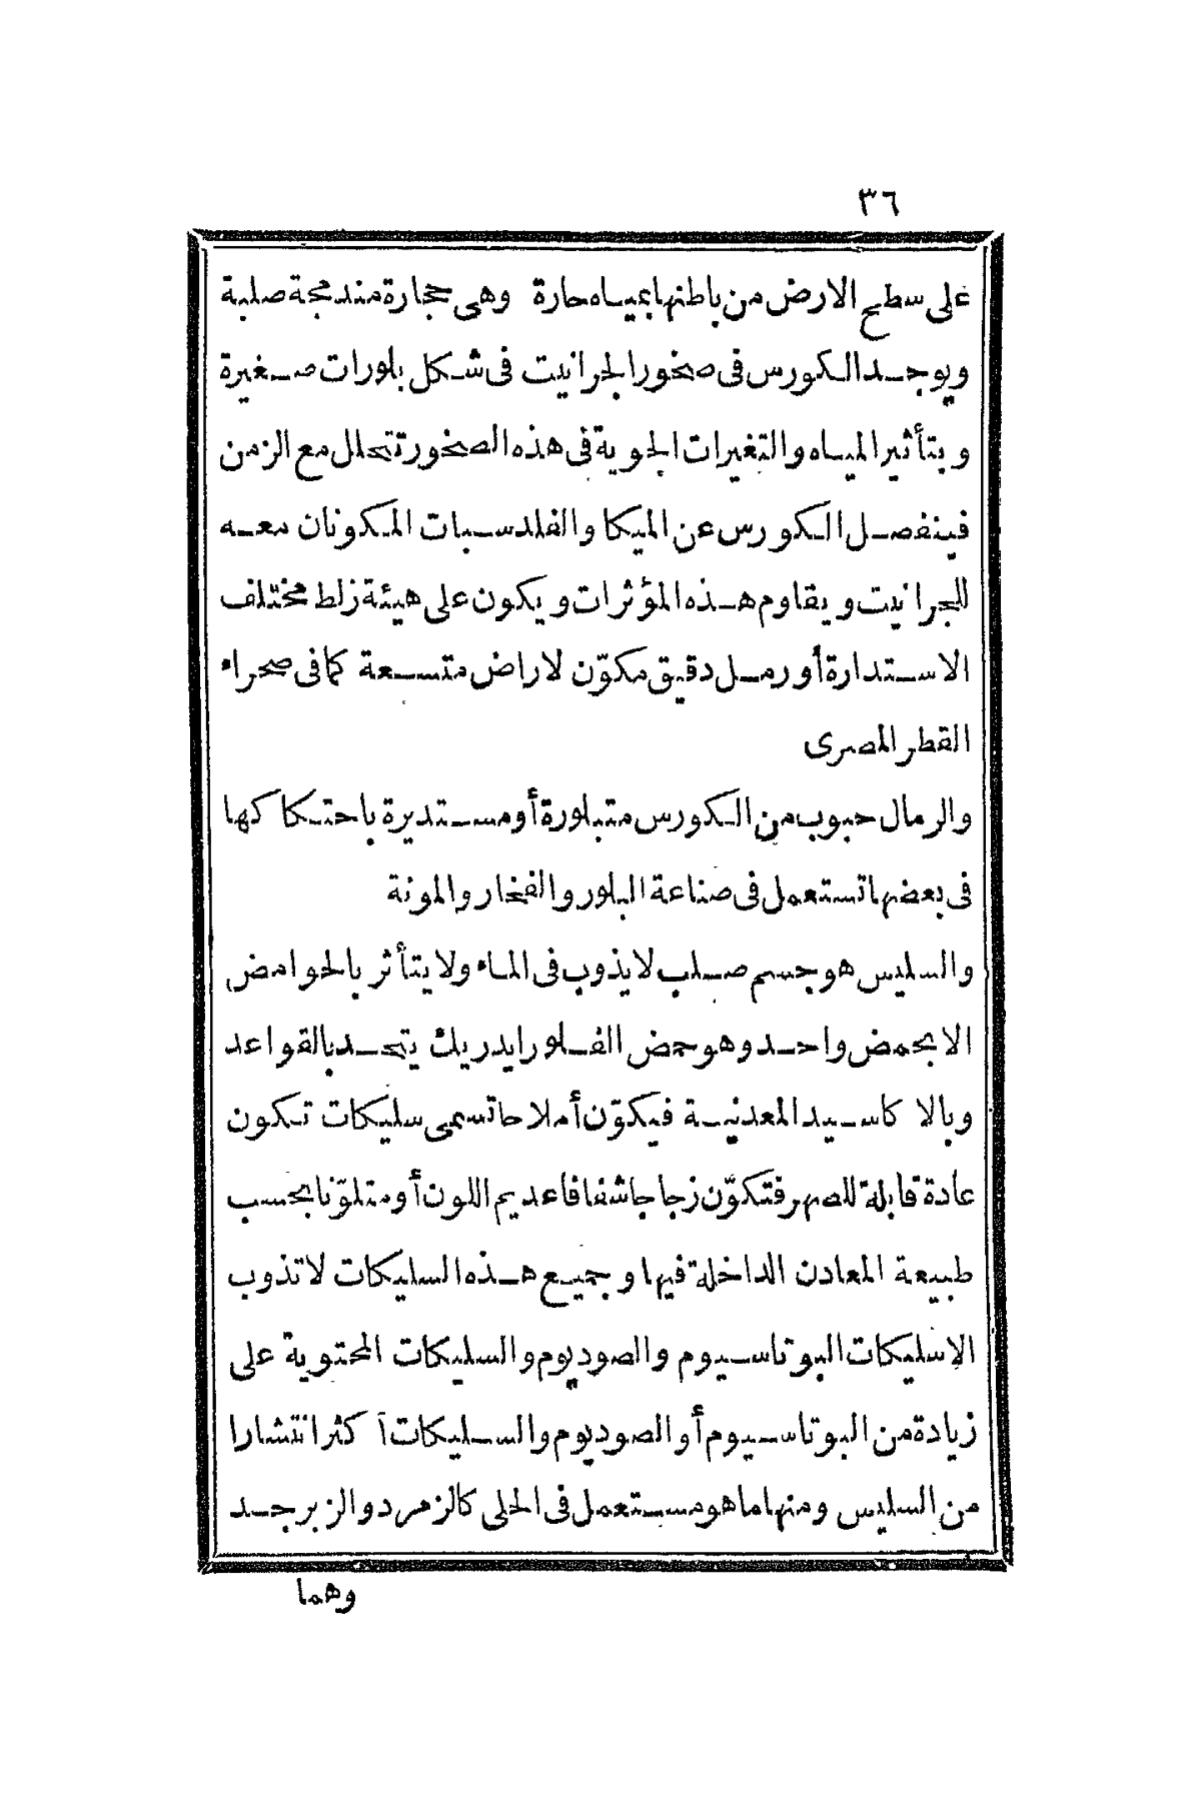 ٣٦
على سطح الارض من باطنها بمياه حارة وهى حجارة مندمجة صلبة
ويوجد الكورس فى صخور الجرانيت فى شكل بلورات صغيرة
وبتأثير المياه والتغيرات الجوية فى هذه الصخور تتحلل مع الزمن
فينفصل الكورس عن الميكا والفلدسبات المكونان معه
للجرانيت ويقاوم هذه المؤثرات ويكون على هيئة زلط مختلف
الاستدارة أو رمل دقيق مكوّن لاراض متسعة كما فى صحراء
القطر المصرى
والرمال حبوب من الكورس متبلورة أو مستديرة باحتكاكها
فى بعضها تستعمل فى صناعة البلور والفخار والمونة
والسليس هو جسم صلب لا يذوب فى الماء ولا يتأثر بالحوامض
الا بحمض واحد وهو حمض الفلورايدريك يتحد بالقواعد
وبالا كاسيد المعدنية فيكوّن أملاحا تسمى سليكات تكون
عادة قابلة للصهر فتكوّن زجاجا شفافا عديم اللون أو متلوّنا بحسب
طبيعة المعادن الداخلة فيها وجميع هذه السليكات لا تذوب
الا سليكات البوتاسيوم والصوديوم والسليكات المحتوية على
زيادة من البوتاسيوم أو الصوديوم والسليكات أكثر انتشارا
من السليس ومنها ما هو مستعمل فى الحلى كالزمرد والزبرجد
وهما